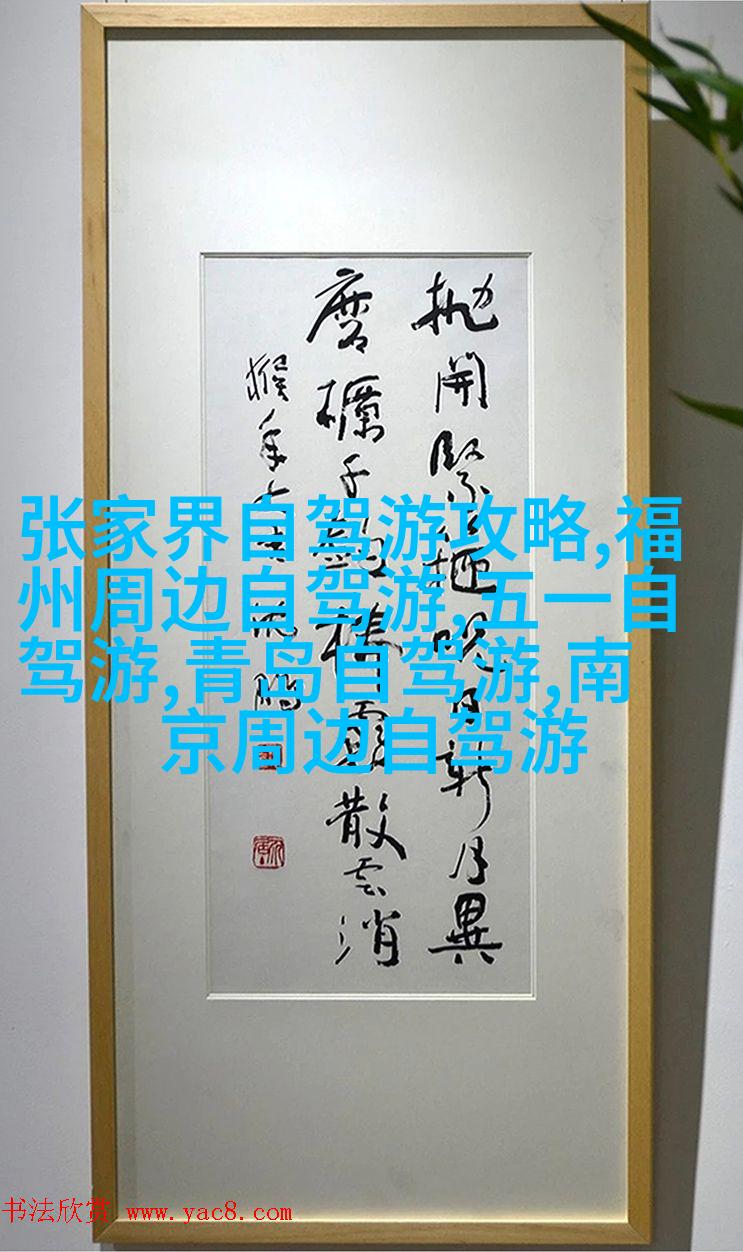 张家界自驾游攻略,福
州周边自驾游,五一自
驾游,青岛自驾游,南
京周边自驾游
抛開緊日新月異
磨千棒散云消
猴年沈鹏
书法欣赏 www.yac8.com